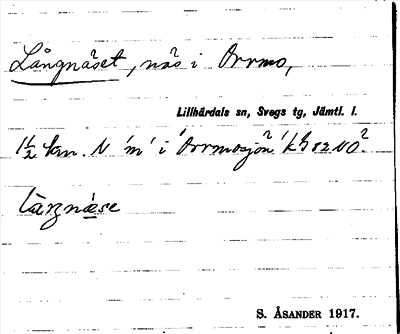 Långnäset, näs i Orrmo,
Lillhärdals sn, Svegs tg, Jämtl. l.
1½ km. N 'm' i 'Orrmosjön' k G 82 NO².
lāṛnǟse
S. ÅSANDER 1917.